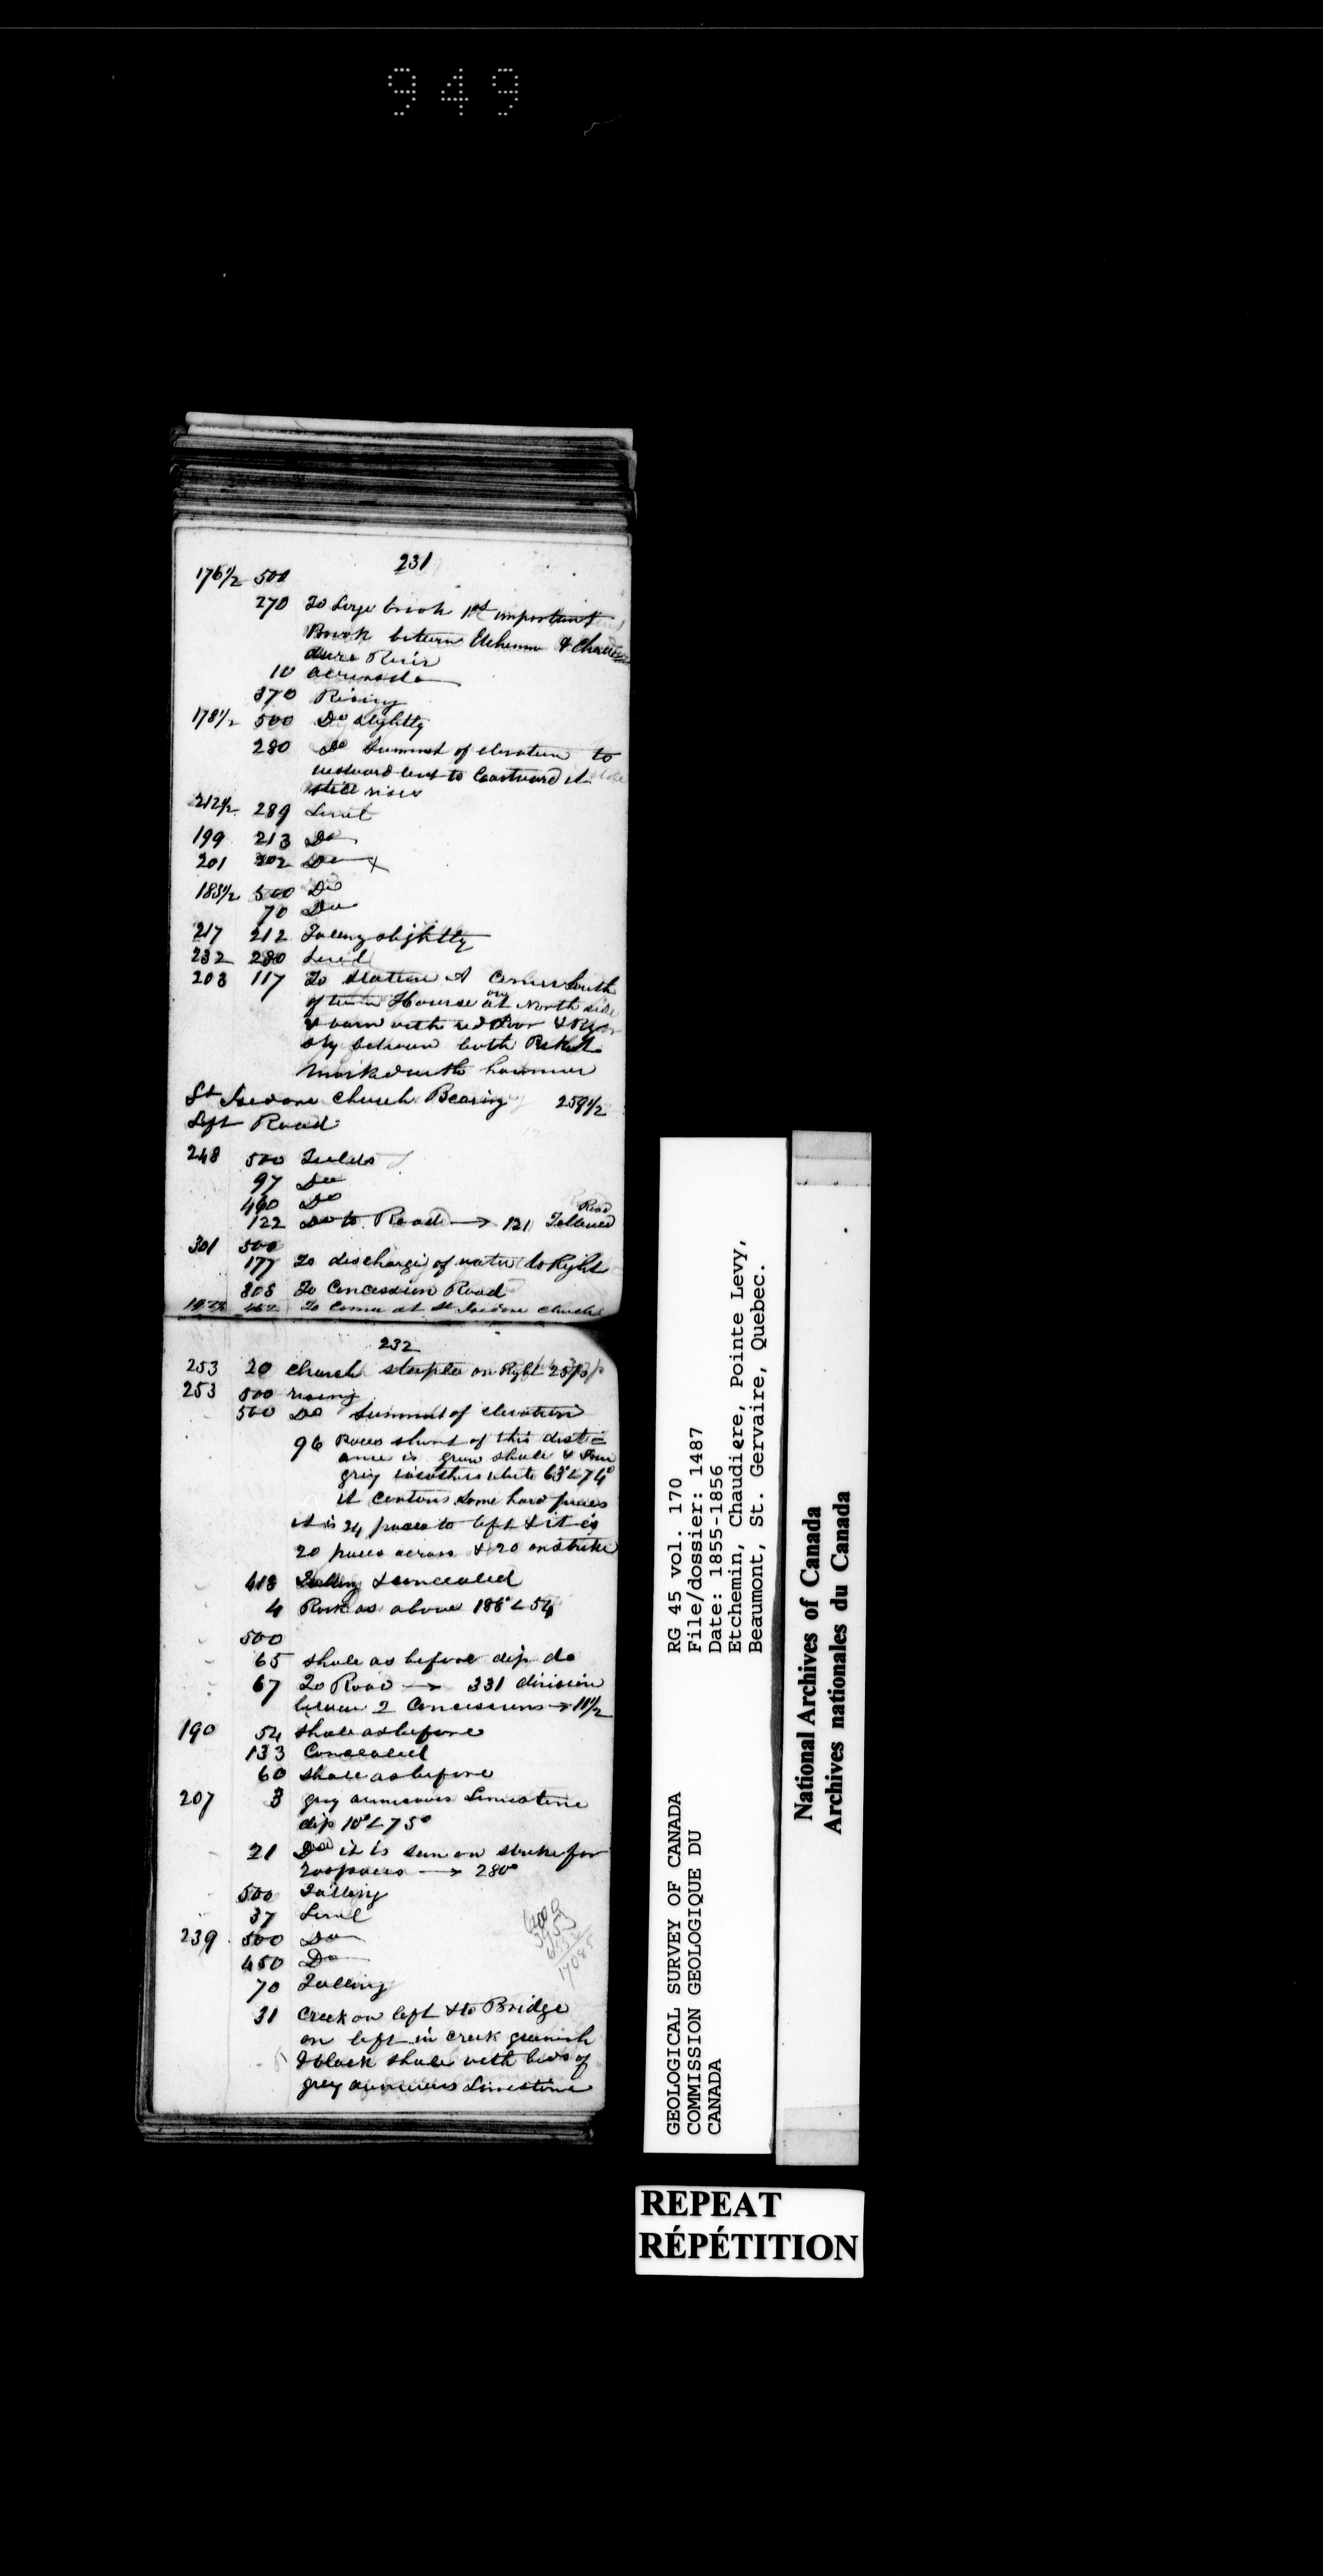 949
231
176 1/2 500
270 To large brook 1st important
Brook between Etchemin & Chau
diere River
10 acrossdo
370 Rising
178 1/2 500 Do slightly
280 Do Summit of elevation to
westward but to Eastward it
still rises
212 1/2 289 Level
199 213 Do
201 302 Do
185 1/2 500 Do
70 Do
217 212 Falling slightly
232 280 Level
203 117 To Station A Corner South
of House on North side
& barn with red door &
between both Picket
marked with hammer
St Isedore Church Bearing 259 1/2
Left Road
248 500 Fields
97 Do
460 Do
122 Do to Road → 121 Road Followed
301 500
177 To discharge of water to Right
808 To Concession Road
To Corner at St Isedore church
232
253 20 church steeple on Right 25 p
253 500 rising
500 Do Summit of elevation
96 Paces short of this dist
ance is green shale & some
grey weathers white 63°<74°
it contains some hard pieces
it is 24 paces to left & it is
20 paces across & 20 on strike
418 Falling & concealed
4 Rock as above 186°<54
500
65 shale as before dip do
67 To Road → 331 division
between 2 Concessions → 11 1/2
190 54 shale as before
133 Concealed
60 shale as before
207 3 grey arenaceous Limestone
dip 10°<75°
21 Do it is seen on strike for
200 paces → 280°
500 Falling
37 Level
239 500 Do
450 Do
70 Falling
31 Creek on left & to Bridge
on left in creek greenish
& black shale with beds of
grey arenaceous Limestone
17085
GEOLOGICAL SURVEY OF CANADA
COMMISSION GEOLOGIQUE DU
CANADA
RG 45 vol. 170
File/dossier: 1487
Date: 1855-1856
Etchemin, Chaudiere, Pointe Levy,
Beaumont, St. Gervaire, Quebec.
National Archives of Canada
Archives nationales du Canada
REPEAT
RÉPÉTITION